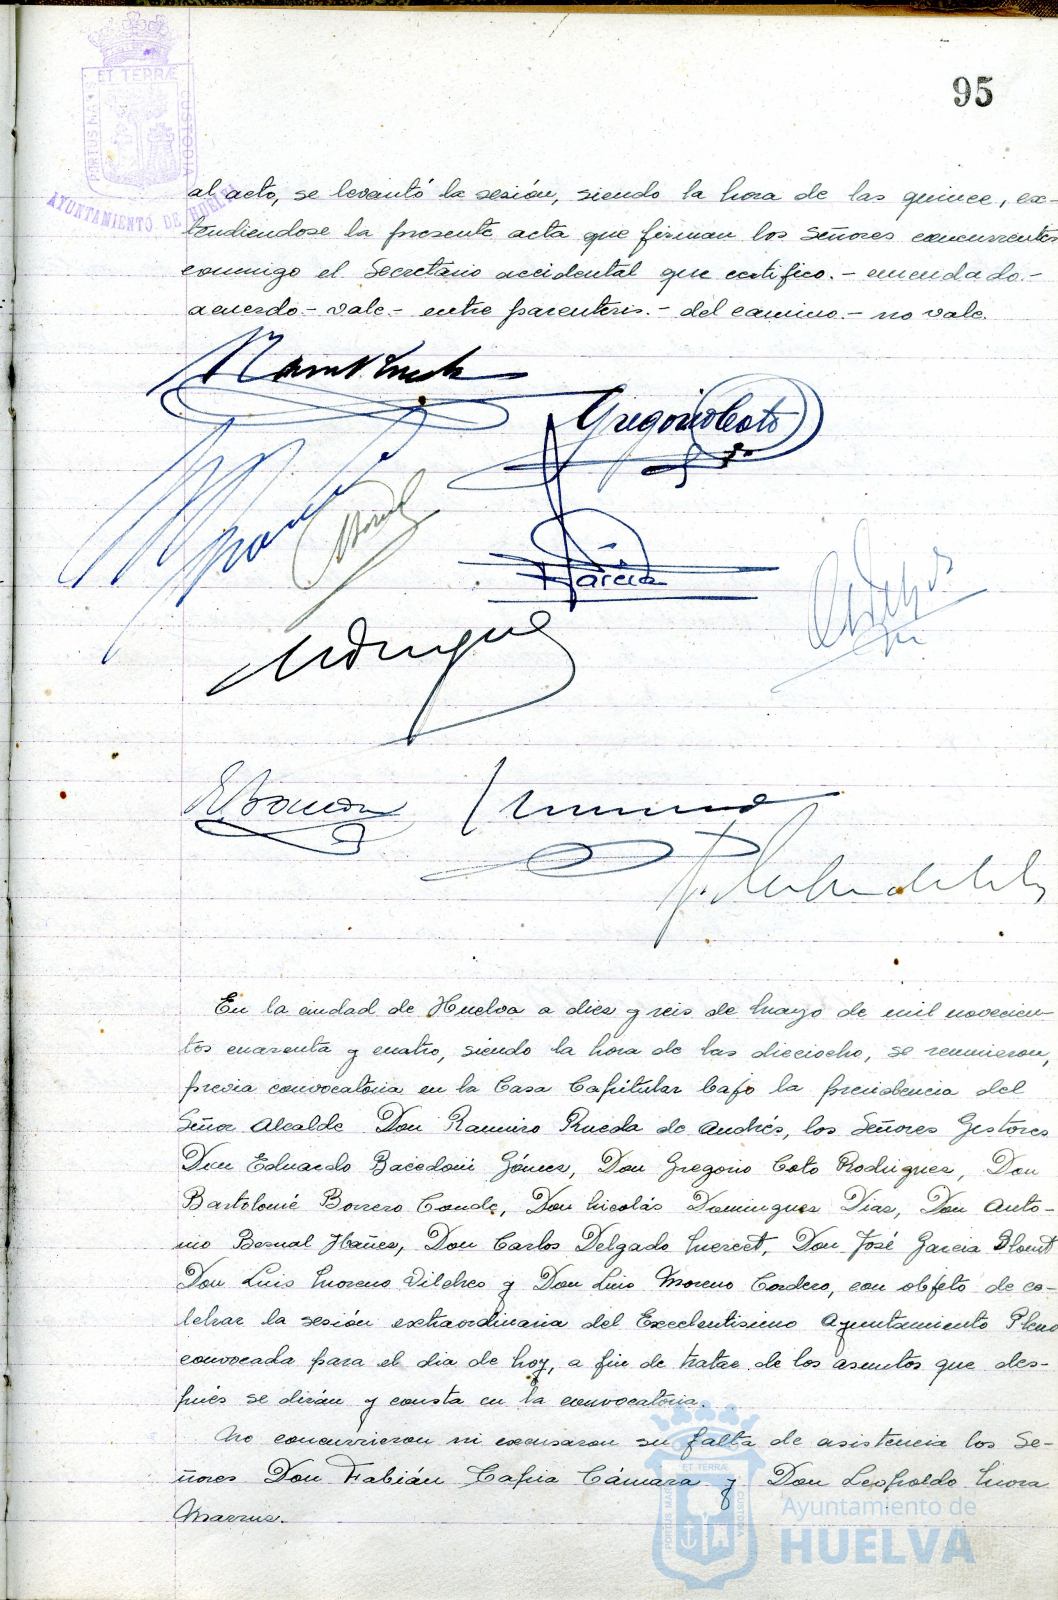 95
PORTUS MARIS ET TERRÆ CUSTODIA
AYUNTAMIENTO DE HUELVA
al acto, se levantó la sesión, siendo la hora de las quince, ex-
tendiendose la presente acta que firman los Señores concurrentes
conmigo el Secretario accidental que certifico.- enmendado.-
acuerdo.- vale.- entre parentesis.- del camino.- no vale.
Gregorio Coto
García
En la ciudad de Huelva a diez y seis de Mayo de mil novecien-
tos cuarenta y cuatro, siendo la hora de las dieciocho, se reunieron,
previa convocatoria en la Casa Capitular bajo la presidencia del
Señor Alcalde Don Ramiro Rueda de Andrés, los Señores Gestores
Don Eduardo Bacedoni Gómez, Don Gregorio Coto Rodriguez, Don
Bartolomé Borrero Conde, Don Nicolás Dominguez Diaz, Don Anto-
nio Bernal Ibañez, Don Carlos Delgado Mercet, Don José Garcia
Don Luis Moreno Vilches y Don Luis Moreno Cordero, con objeto de ce-
lebrar la sesión extraordinaria del Excelentisimo Ayuntamiento Pleno
convocada para el dia de hoy, a fin de tratar de los asuntos que des-
pués se dirán y consta en la convocatoria.
No concurrieron ni excusaron su falta de asistencia los Se-
ñores Don Fabián Cámara y Don Leopoldo Mora
ET TERRÆ
PORTUS MARIS
CUSTODIA
Ayuntamiento de
HUELVA